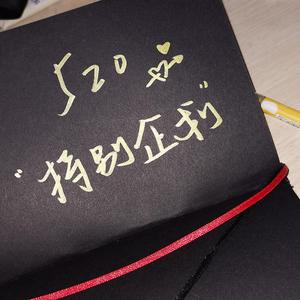 520
"特别企划"